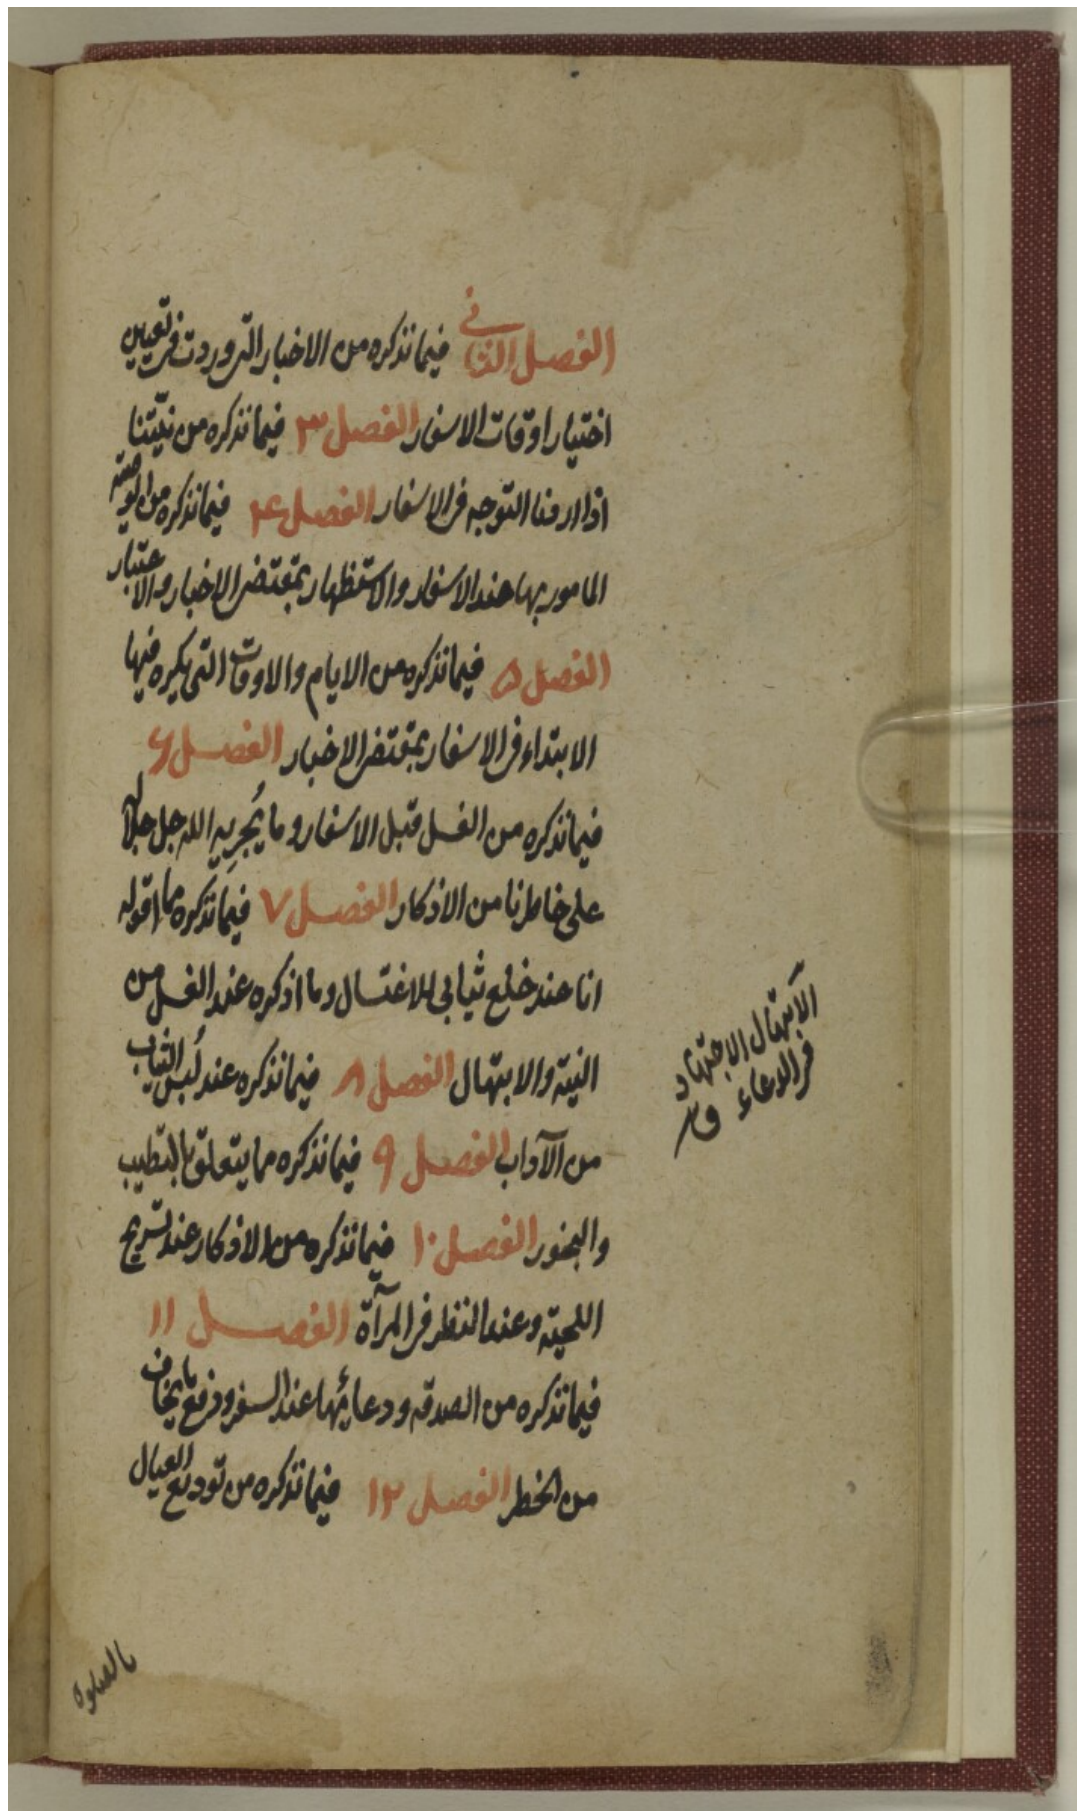 الفصل الثاني فيما نذكره من الاخبار التي وردت في تعيين
اختيار اوقات الاسفار الفصل ٣ فيما نذكره من نيّتنا
اذا اردنا التوجه في الاسفار الفصل ۴ فيما نذكره من الوصية
المامور بها عند الاسفار والاستظهار بمقتضى الاخبار والاعتبار
الفصل ۵ فيما نذكره من الايام والاوقات التي يكره فيها
الابتداء في الاسفار بمقتضى الاخبار الفصل ۶
فيما نذكره من الغسل قبل الاسفار وما يُجرِيه الله جل جلاله
على خاطرنا من الاذكار الفصل ٧ فيما نذكره مما اقوله
انا عند خلع ثيابي للاغتسال وما اذكره عند الغسل من
النية والابتهال الفصل ٨ فيما نذكره عند لُبس الثياب
من الآداب الفصل ٩ فيما نذكره مما يتعلق بالتطيب
والبخور الفصل ١٠ فيما نذكره من الاذكار عند تسريح
اللحية وعند النظر في المرآة الفصل ١١
فيما نذكره من الصدقه ودعائها عند السفر ودفع ما يخاف
من الخطر الفصل ١٢ فيما نذكره من توديع العيال
بالصلوة
الابتهال الاجتهاد
في الدعاء